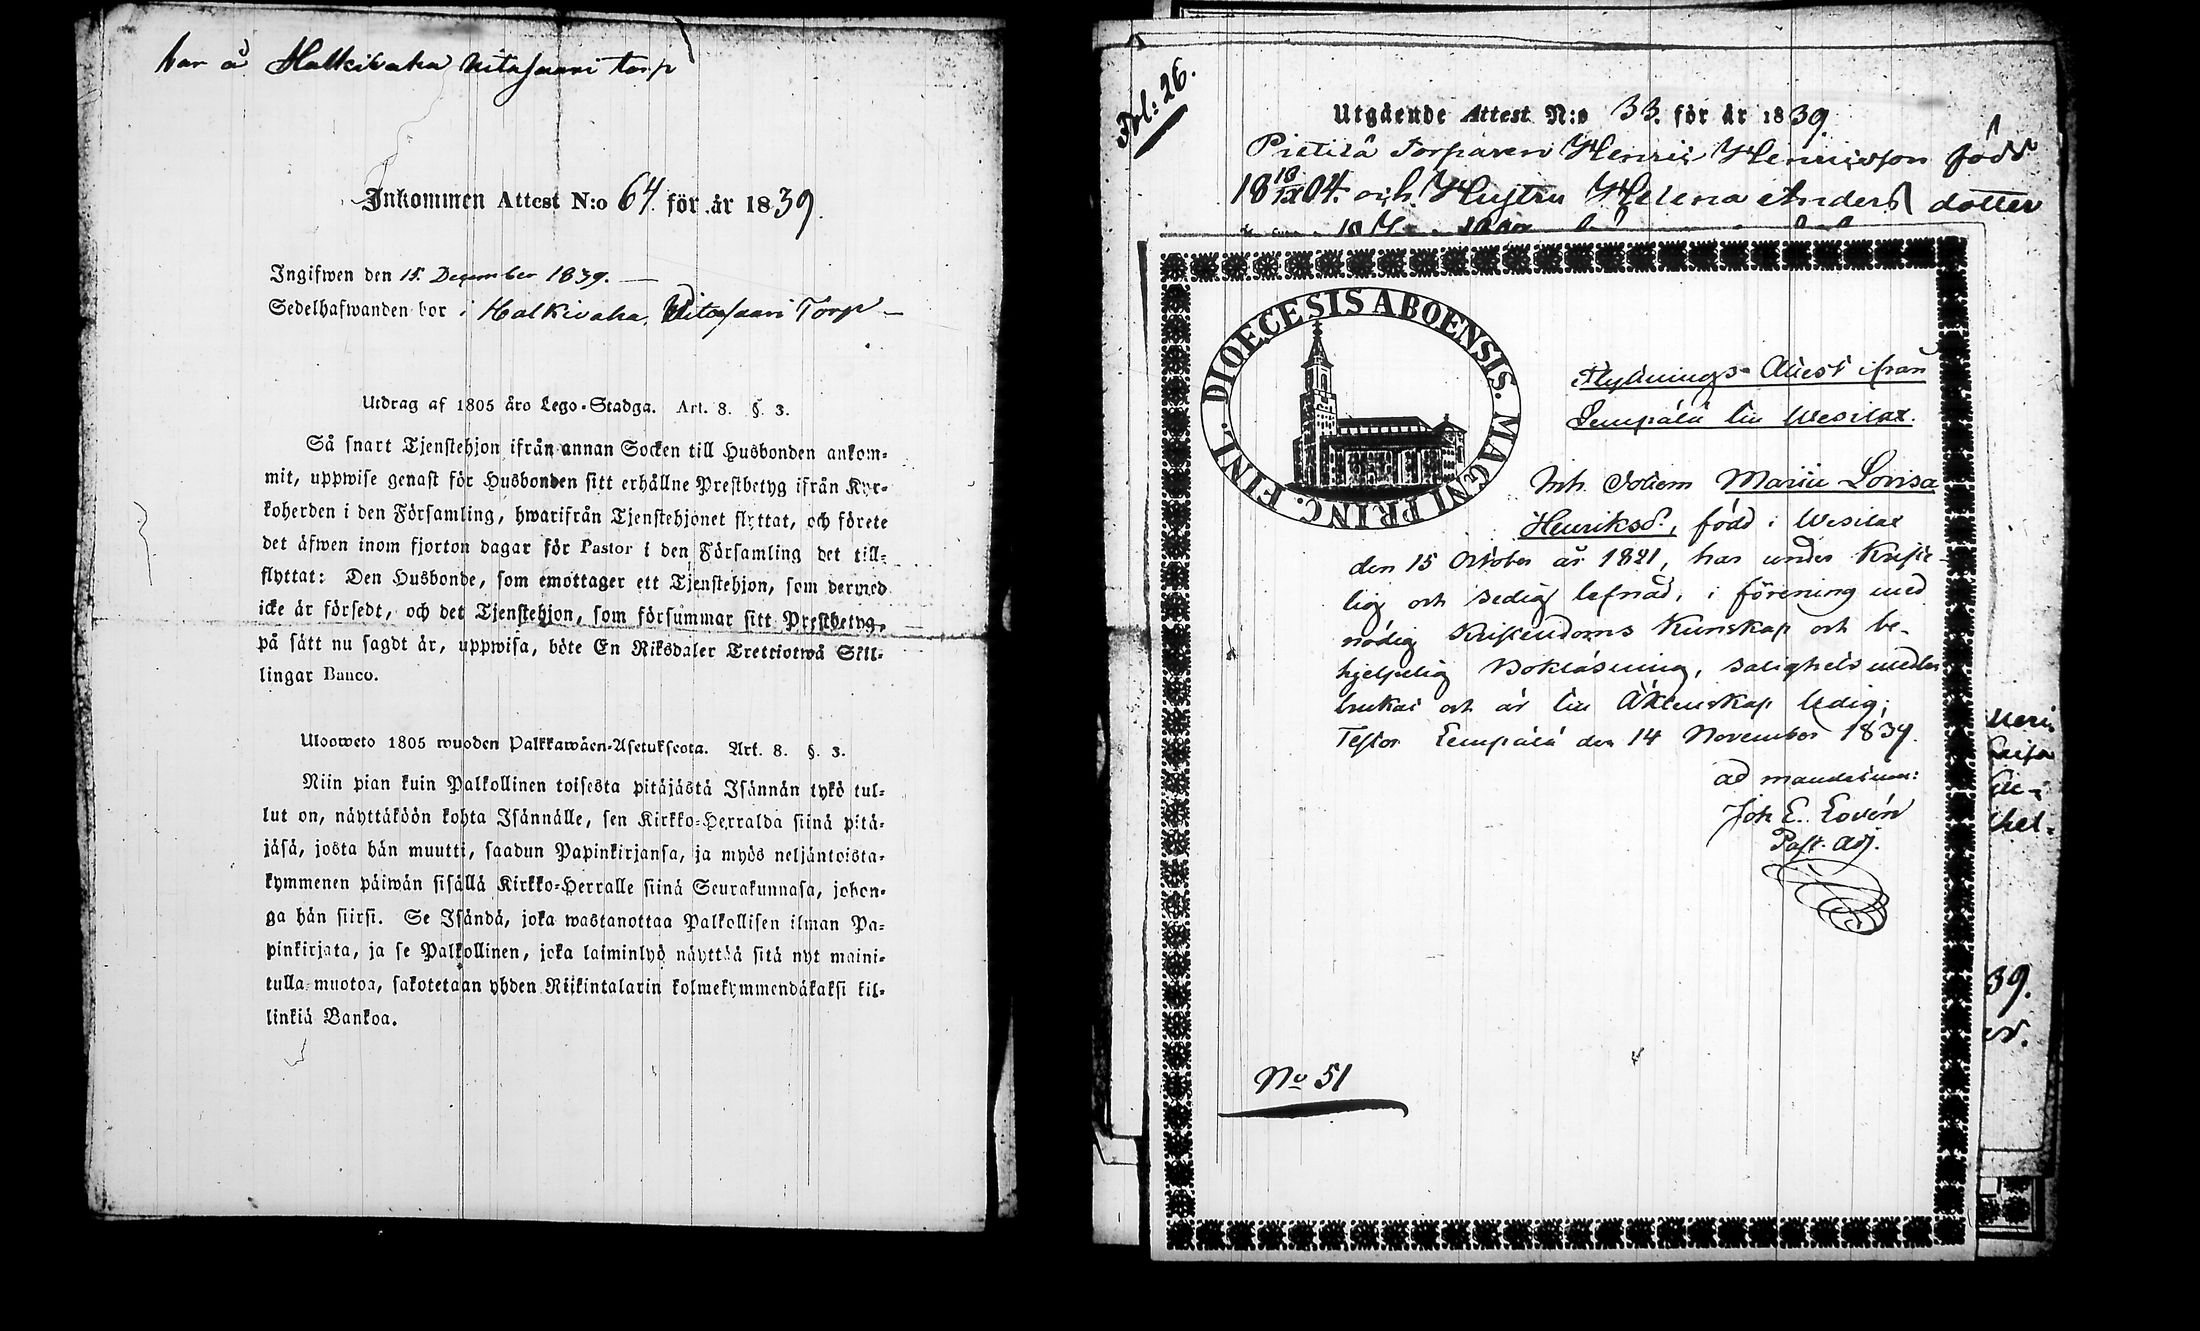 bor å Halkivaha Uitasaari torp
Inkommen Attest N:o 64. för år 1839.
Ingifwen den 15. December 1839.
Sedelhafwanden bor i Halkivaha, Uitasaari Torp
Utdrag af 1805 års Lego-Stadga. Art. 8. §. 3.
Så snart Tjenstehjon ifrån annan Socken till Husbonden ankom-
mit, uppwise genast för Husbonden sitt erhållne Prestbetyg ifrån Kyr-
koherden i den Församling, hwarifrån Tjenstehjonet flyttat, och förete
det äfwen inom fjorton dagar för Pastor i den Församling det till-
flyttat: Den Husbonde, som emottager ett Tjenstehjon, som dermed
icke är försedt, och det Tjenstehjon, som försummar sitt Prestbetyg,
på sätt nu sagdt är, uppwisa, böte En Riksdaler Trettiotwå Skil-
lingar Banco.
Ulosweto 1805 wuoden Palkkawäen-Asetuksesta. Art. 8. §. 3.
Niin pian kuin Palkollinen toisesta pitäjästä Isännän tykö tul-
lut on, näyttäköön kohta Isännälle, sen Kirkko-Herralda siinä pitä-
jäsä, josta hän muutti, saadun Papinkirjansa, ja myös neljäntoista-
kymmenen päiwän sisällä Kirkko-Herralle siinä Seurakunnasa, johon-
ga hän siirsi. Se Isändä, joka wastanottaa Palkollisen ilman Pa-
pinkirjata, ja se Palkollinen, joka laiminlyö näyttää sitä nyt maini-
tulla muotoa, sakotetaan yhden Riikintalarin kolmekymmendäkaksi kil-
linkiä Bankoa.
Fol: 26.
Utgående Attest N:o 33. för år 1839.
Pietilä Torparen Henric Henricsson född
18 18/IX 04. och Hustru Helena Anders dotter
DIOECESIS ABOENSIS. MAGNI PRINC. FINL.
Flyttnings-Attest ifrån
Lempälä till Wesilax.
Inh. Tolsem Maria Lovisa
Henriksd:, född i Wesilax
den 15 October år 1821, har under Kriste-
lig och sedig lefnad, i förening med
nödig Kristendoms Kunskap och be-
hjelpelig Bokläsning, salighetsmedlen
brukat och är till Äktenskap ledig;
Testor Lempälä den 14 November 1839.
ad mandatum:
Joh E. Lovén
Past. Adj.
No 51
39.